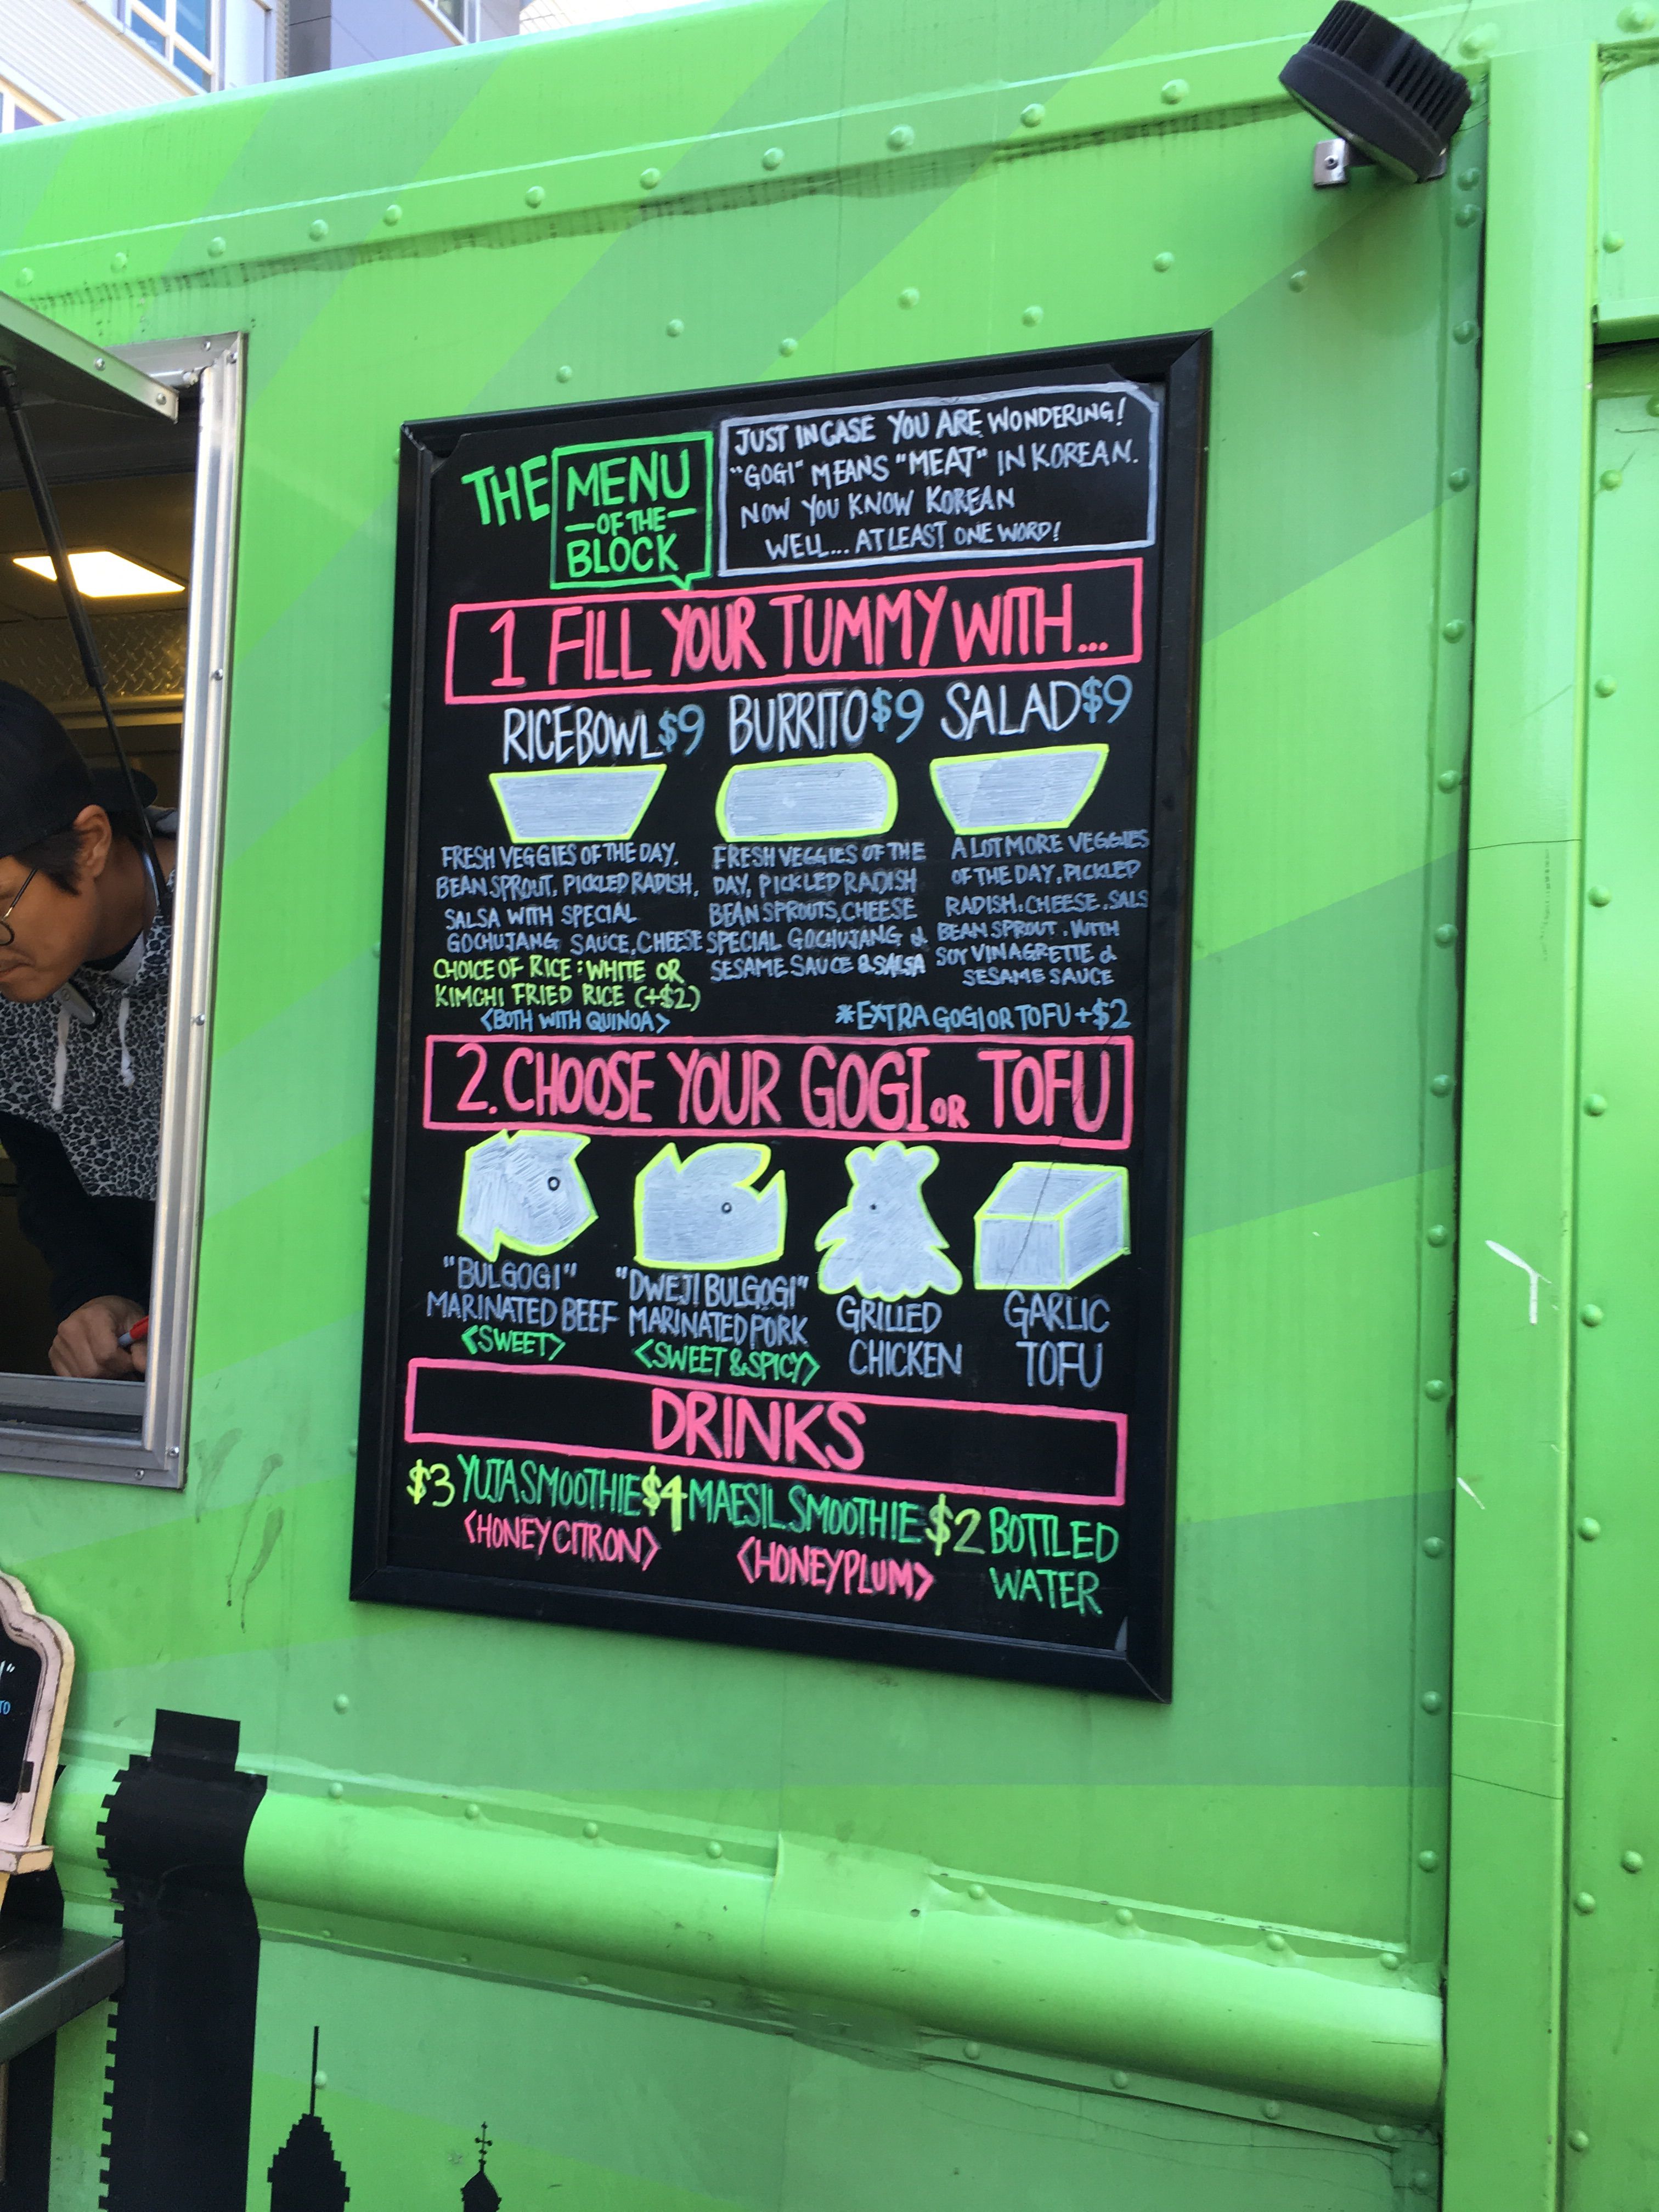 THE MENU
OF THE
BLOCK
JUST IN CASE YOU ARE WONDERING!
"GOGI" MEANS "MEAT" IN KOREAN.
NOW YOU KNOW KOREAN
WELL... AT LEAST ONE WORD!
1 FILL YOUR TUMMY WITH...
RICE BOWL $9
FRESH VEGGIES OF THE DAY.
BEAN SPROUT, PICKLED RADISH,
SALSA WITH SPECIAL
GOCHUJANG SAUCE, CHEESE
CHOICE OF RICE : WHITE OR
KIMCHI FRIED RICE (+$2)
<BOTH WITH QUINOA>
BURRITO $9
FRESH VEGGIES OF THE
DAY, PICKLED RADISH
BEAN SPROUTS, CHEESE
SPECIAL GOCHUJANG &
SESAME SAUCE & SALSA
SALAD $9
A LOT MORE VEGGIES
OF THE DAY, PICKLED
RADISH. CHEESE. SALS
BEAN SPROUT. WITH
SOY VINAGRETTE &
SESAME SAUCE
*EXTRA GOGI OR TOFU +$2
2. CHOOSE YOUR GOGI OR TOFU
"BULGOGI"
MARINATED BEEF
<SWEET>
"DWEJI BULGOGI"
MARINATED PORK
<SWEET & SPICY>
GRILLED
CHICKEN
GARLIC
TOFU
DRINKS
$3 YUJA SMOOTHIE
<HONEY CITRON>
$4 MAESIL SMOOTHIE
<HONEY PLUM>
$2 BOTTLED
WATER